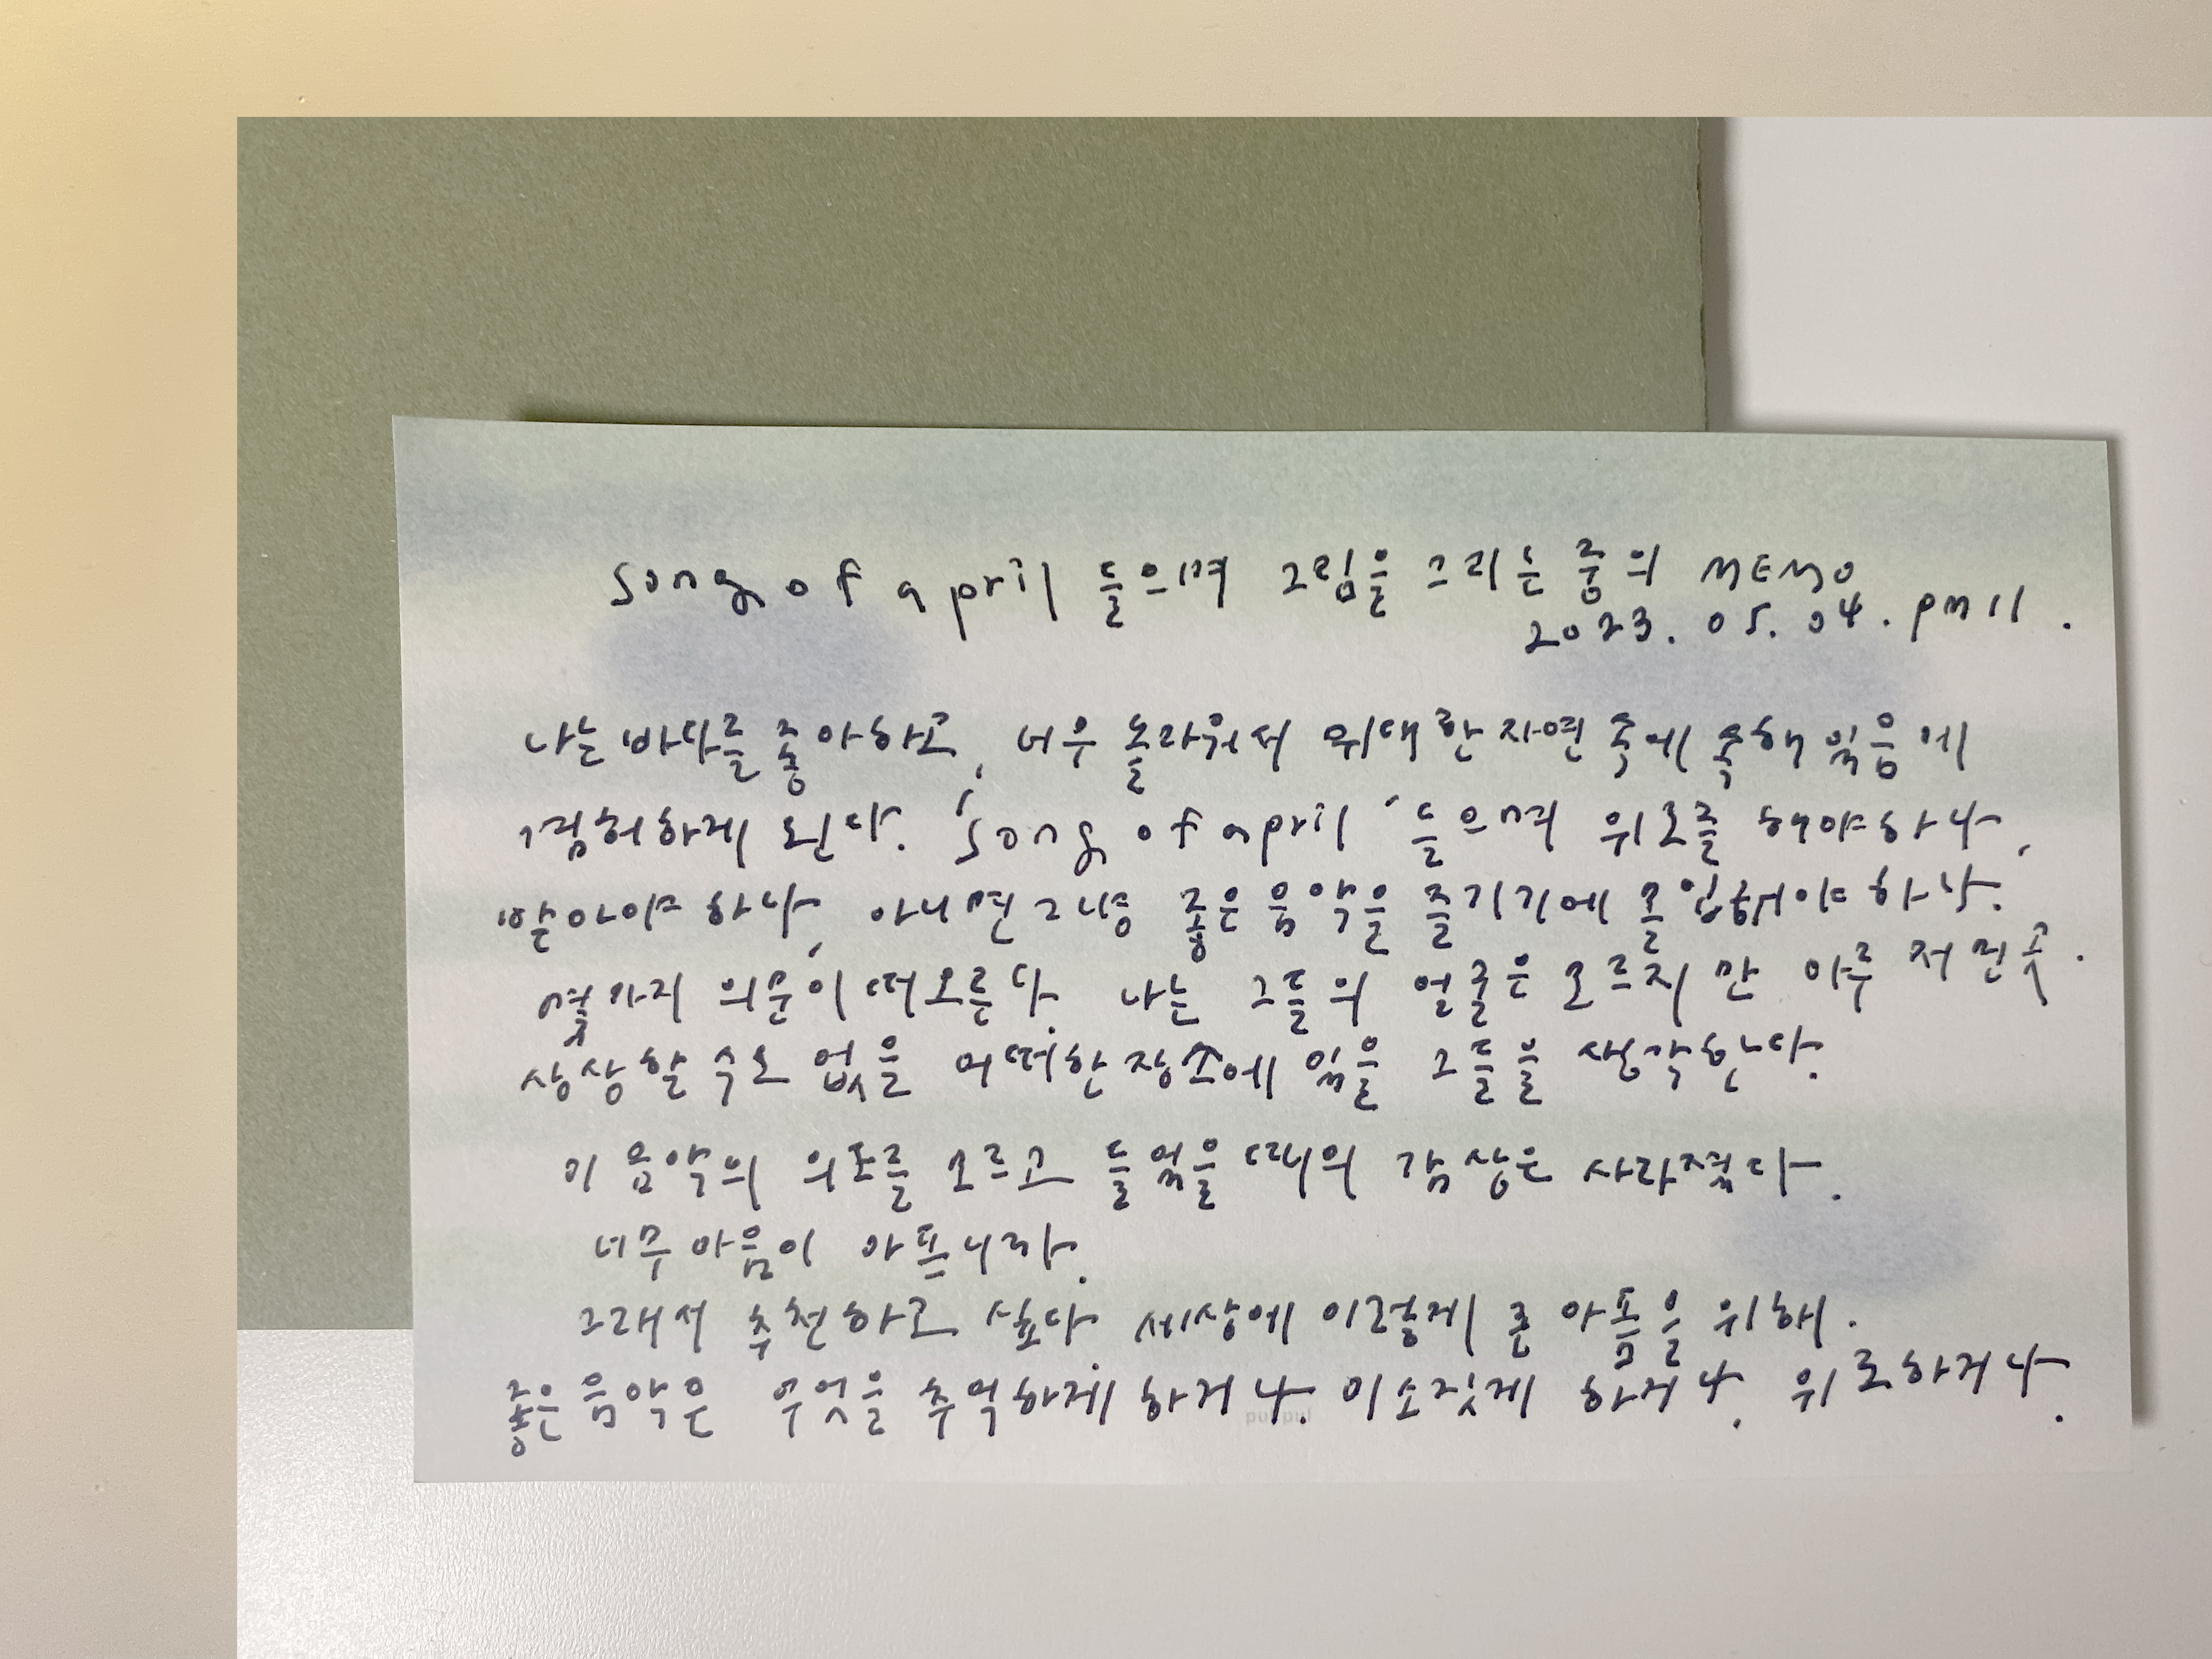 Song of april 들으며 그림을 그리는 중의 MEMO
2023. 05. 04. pm 11.
나는 바다를 좋아하고, 너무 놀라워서 위대한 자연 속에 속해 있음에
겸허하게 된다. 'Song of april' 들으며 위로를 해야하나,
받아야 하나, 아니면 그냥 좋은 음악을 즐기기에 몰입해야 하나.
몇가지 의문이 떠오른다. 나는 그들의 얼굴은 모르지만 아주 저편 곳.
상상할 수도 없을 어떠한 장소에 있을 그들을 생각한다.
이 음악의 의도를 모르고 들었을 때의 감상은 사라졌다.
너무 마음이 아프니까.
그래서 추천하고 싶다 세상에 이렇게 큰 아픔을 위해.
좋은 음악은 무엇을 추억하게 하거나. 미소짓게 하거나. 위로하거나.